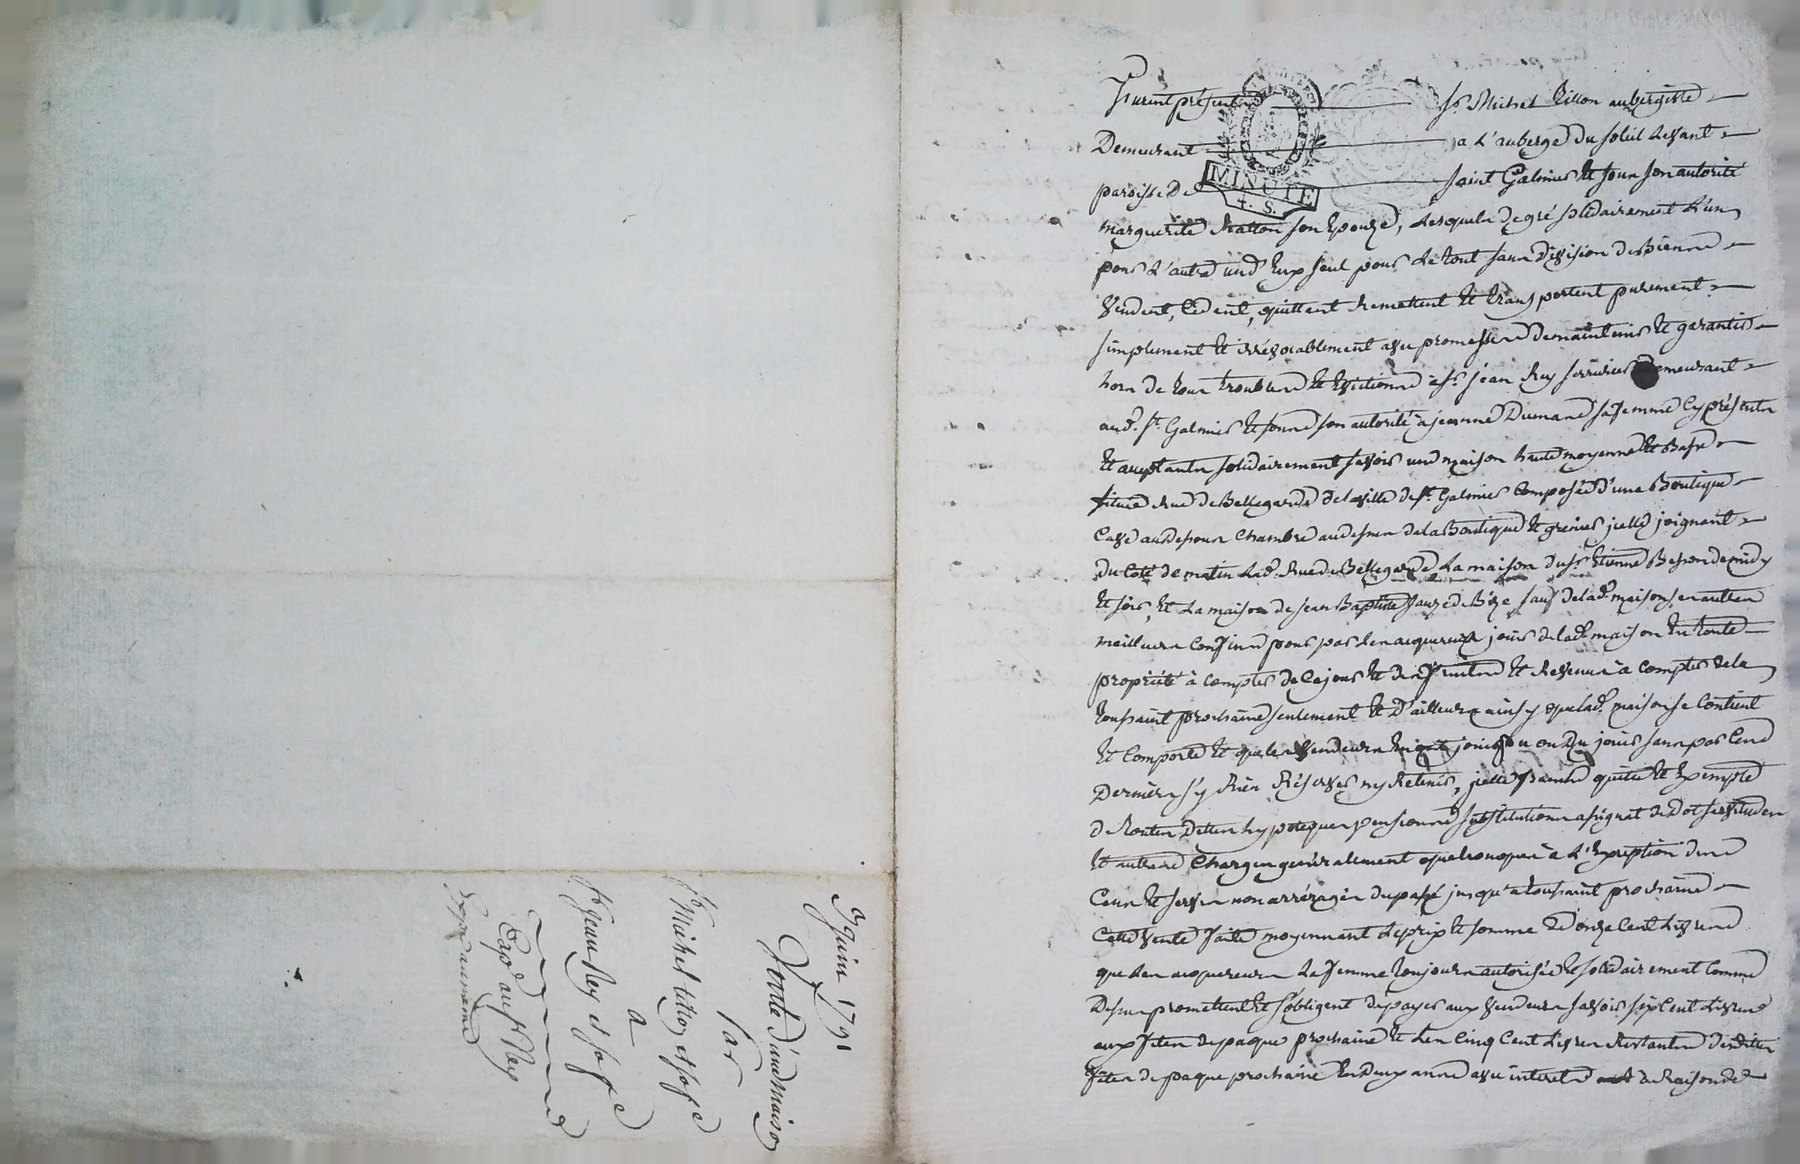 9 juin 1791
Vente d'une maison
par
Sr Michel titton et sa fe
a
Sr jean Rey et sa fe
Expo au Sr Rey
MINUTE
4. S.
Furent présents Sr Michel titton aubergiste
Demeurant a L'auberge du soleil Levant
paroisse De Saint Galmier et sous son autorité
marguerite son Epouze, Lesquels de gré solidairement L'un
pour L'autre un d'Eux seul pour Le tout sans division de Biens
Vendent, Cedent, quittent Remettent et transportent purement
simplement et irrévocablement avec promesse de maintenir et garantir
hors de tous troubles et Evictions à Sr jean Rey serrurier Demeurant
aud. St. Galmier et sous son autorité à jeanne Dumand sa femme Cy présents
et acceptants solidairement savoir une maison haute moyenne et Basse
située Rue de Bellegarde de la ville de St. Galmier Composée d'une Boutique
Cave au dessous Chambre au dessus de la Boutique et grenier, jcelle joignant
du Coté de matin Lad. Rue de Bellegarde La maison du Sr. Etienne Besson de midy
et soir, et La maison de jean Baptiste de Bize sauf de lad. maison ses autres
meilleurs Confins pour par Les acquereurs jouir de lad. maison En toute
propriété à compter de Ce jour et des fruits et Revenus à compter de La
toussaint prochaine seulement et D'ailleurs ainsy que lad. maison se Contient
et Comporte et que les Vendeurs En ont jouy ou Du jouir sans par Ces
Derniers s'y Rien Réserver ny Retenir, jcelle franche quitte et Exempte
de toutes Dettes hypoteques pensions substitutions assignat de Dot servitudes
et autres Charges généralement quelconques à L'Exception des
Cens et servis non arréragés du passé jusqu'a toussaint prochaine
Cette Vente faite moyennant Le prix et somme De onze Cent Livres
que Les acquereurs La femme toujours autorisée et solidairement Comme
Dessus promettent et s'obligent de payer aux Vendeurs savoir six Cent Livres
aux fetes de paque prochaine et Les Cinq Cent Livres Restantes Desdites
fetes de paque prochaine En Deux anns avec interets à Raison de